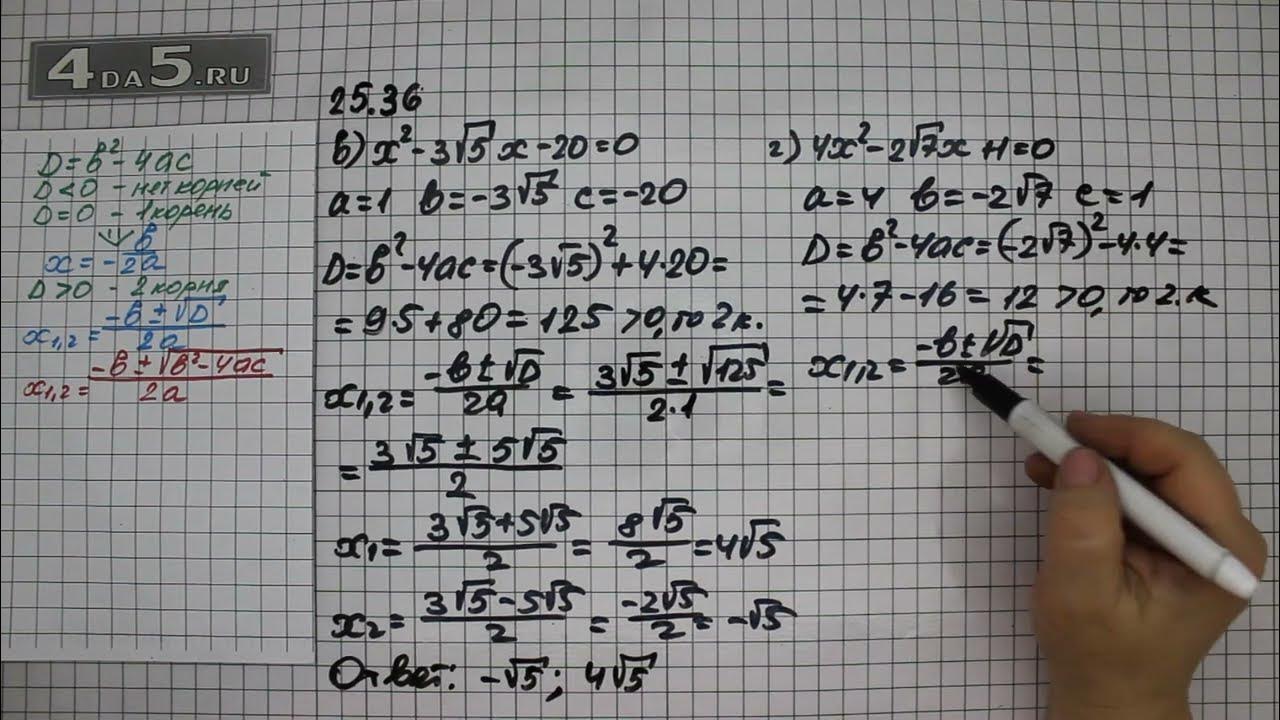 4DA5.RU
D=b²-4ac
D<0 - нет корней
D=0 - 1 корень
x=-b/2a
D>0 - 2 корня
x₁,₂=(-b±√D)/2a
x₁,₂=(-b±√(b²-4ac))/2a
25.36
в) x²-3√5x-20=0
a=1 b=-3√5 c=-20
D=b²-4ac=(-3√5)²+4·20=
=9·5+80=125>0, то 2 к.
x₁,₂=(-b±√D)/2a=(3√5±√125)/2·1=
=(3√5±5√5)/2
x₁=(3√5+5√5)/2=8√5/2=4√5
x₂=(3√5-5√5)/2=-2√5/2=-√5
Ответ: -√5; 4√5
г) 4x²-2√7x+1=0
a=4 b=-2√7 c=1
D=b²-4ac=(-2√7)²-4·4=
=4·7-16=12>0, то 2.к
x₁,₂=(-b±√D)/2a=